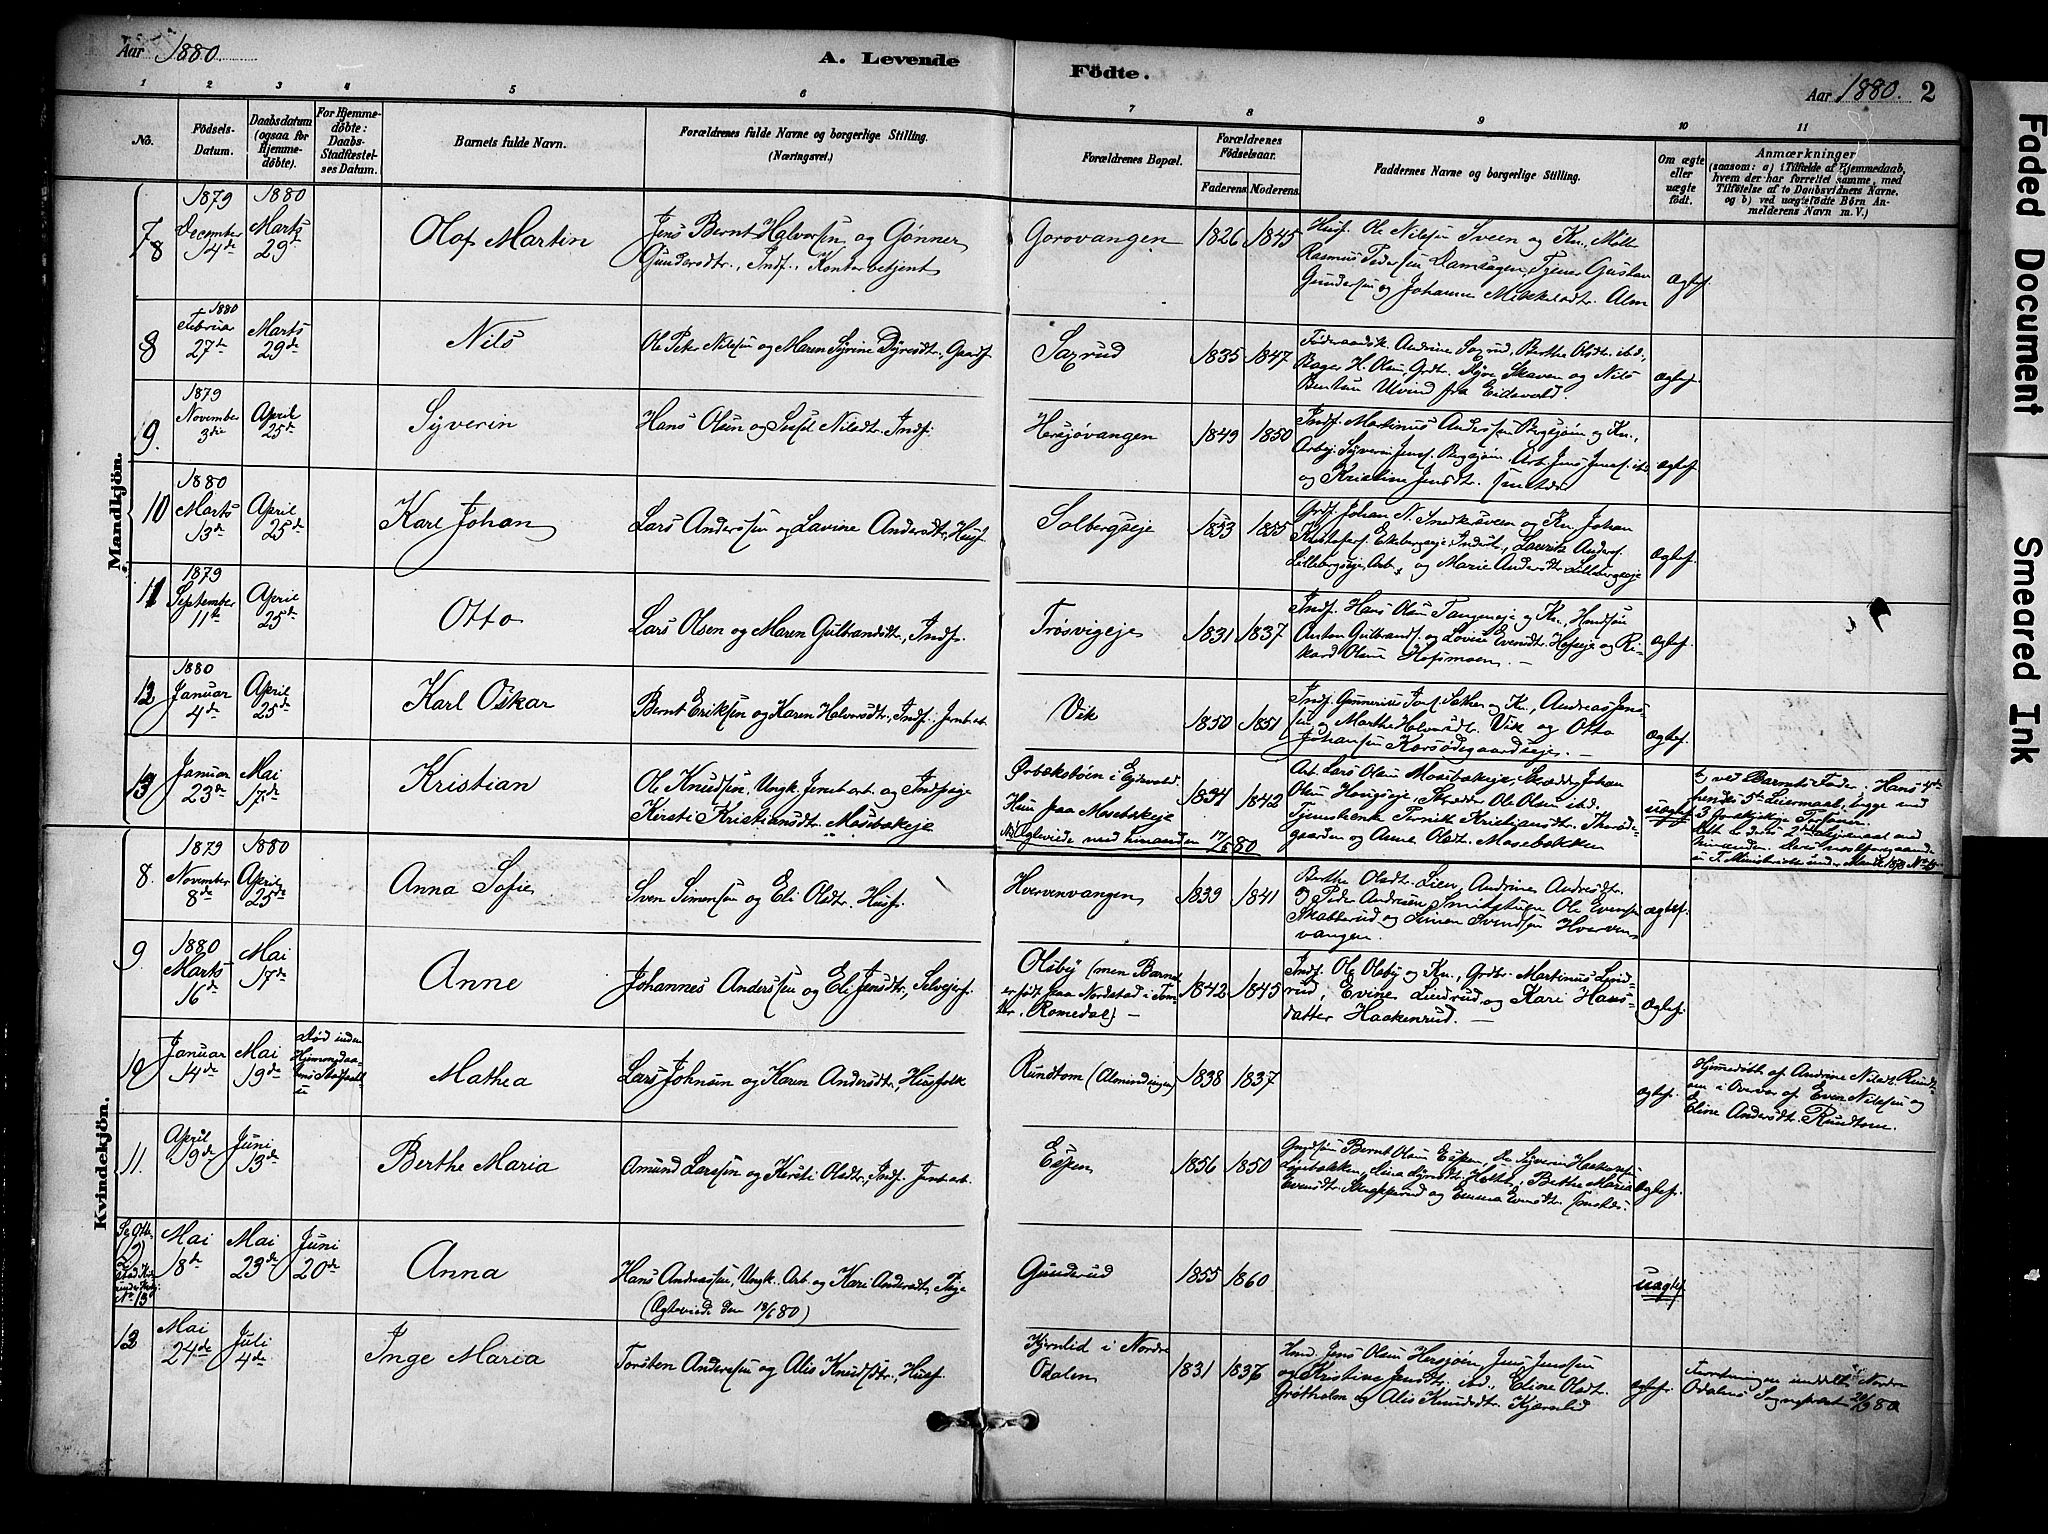 Aar 1880.
A. Levende Födte.
Aar 1880. 2
1 2 3 4 5 6 7 8 9 10 11
No.
Födsels-Datum.
Daabsdatum (ogsaa for Hjemmedøbte).
For Hjemmedøbte: Daabs-Stadfæstelses Datum.
Barnets fulde Navn.
Forældrenes fulde Navne og borgerlige Stilling.
(Næringsvei.)
Forældrenes Bopæl.
Forældrenes Födselsaar.
Faderens. Moderens.
Faddernes Navne og borgerlige Stilling.
Om ægte eller uægte födt.
Anmærkninger
(saasom: a) i Tilfælde af Hjemmedaab,
hvem der har forrettet samme, med
Tilföielse af to Daabsvidners Navne.
og b) ved uægtefödte Börn Anmelderens Navn m. V.)
Mandkjön.
7 8
1879 December 14de
1880 Marts 29de
Olaf Martin
Jens Bernt Halvorsen og Gønner
Gundersdtr., Indf., Kontorbetjent
Gorovangen
1826 1845
Husf. Ole Nilssen Sveen og Kn., Møll.
Rasmus Pedersen Damsagen, Tjener Gustav
Gundersen og Johanne Mikkelsdtr. Alm
ægtef.
8
1880 Februar 27de
Marts 29de
Nils
Ole Peter Nilssen og Maren Syrine Dyresdtr., Gaardf.
Saxrud
1835 1847
Føderaadsk. Andrine Saxrud, Berthe Olsdtr. ibd.,
Bager H. Olsen, Grdtr. Skaven og Nils
Bentsen Ulvind fra Eidsvold.
ægtef.
9.
1879 November 3die
April 25de
Syverin
Hans Olsen og Nilsdtr. Indf.
Hersjøvangen
1849 1850
Indf. Martinus Anderssen Bergsjøen og Kn.,
Arbej. Syverin Jenss. Bergsjøen, Arb. Jens Jenss. ibd.
og Kristine Jensdtr.
ægtef.
10
1880 Marts 13de
April 25de
Karl Johan
Lars Anderssen og Lavine Andersdtr., Husf.
Solbergseje
1853 1855
Grdf. Johan N. Snekkersveen og Kn., Johan
Kristofers. Ekebergseje, Inderst, Lauritz Anders.
Lillebergseje, Arb., og Marie Andersdtr. Lillebergseje
ægtef.
11
1879 September 11te
April 25de
Otto
Lars Olsen og Maren Gulbrandsdtr., Indf.
Trøsvigeje
1831 1837
Indf. Hans Olsen Tangeneje og Kn.,
Anton Gulbrands. og Lovise Evensdtr. Hofseje og Ri-
kard Olsen Hofsmoen. —
ægtef.
12
1880 Januar 4de
April 25de
Karl Oskar
Bernt Erikssen og Karen Halvorsdtr., Indf. Jernb.arb.
Vik
1850 1851
Indf. Gunnerius Sæther og K., Andreas Jens-
sen og Marthe Halvorsdtr. Vik og Otto
Johanssen Korsødegaardseje. —
ægtef.
13
Januar 23de
Mai 17de
Kristian
Ole Knudsen, Ungk. Jernb.arb. og Indspige
Kirsti Kristiansdtr. Mosebækeje
Ørbækstøen i Ejdsvold.
Hun paa Mosebækeje
NB Ægteviede med hinanden 17/5 80
1834 1842
Arb. Lars Olsen Mosebækeje, Skrædder Johan
Olsen Haugseje, Skrædder Ole Olsen ibd.
Tjenestepige Kristiansdtr.
gaarden og Anne Olsdtr. Mosebækken
uægtef.
b) ved Barnets Fader. Hans 4de
hendes 5te Leiermaal, begge med
3 forskjellige Personer.
Dette er deres 2det Leiermaal med
hinanden.
Kvindekjön.
8.
1879 November 8de
1880 April 25de
Anna Sofie
Sven Simensen og Eli Olsdtr. Husf.
Hvervenvangen
1839 1841
Berthe Olsdtr. Lien, Andrine Andersdtr.
og Peder Andersen Smitstuen, Ole Evensen
Skabberud og Simen Svendsen Hverven-
vangen.
ægtef.
9
1880 Marts 16de
Mai 17de
Anne
Johannes Anderssen og Eli Jensdtr., Selvejerf.
Olsby (men Barnet
er født paa Nordstad i
Romedal) —
1842 1845
Indf. Ole Olsby og Kn., Grdbr. Martinus Lind-
rud, Evine Lindrud og Kari Hans-
datter Haakenrud. —
ægtef.
10
Januar 14de
Mai 19de
Død inden Hjemmedaabens
Mathea
Lars Johnsen og Karen Andersdtr., Husfolk
Rundtom (Almindingen)
1838 1837
ægtef.
Hjemmedøbt af Andrine Nilsdtr. Rundt-
om i Overvær af Even Nilssen og
Eline Andersdtr. Rundtom.
11.
April 19de
Juni 13de
Berthe Maria
Amund Larssen og Kersti Olsdtr., Indf. Jernb.arb.
Espen
1856 1850
Bernt Olsen Espen, Syverin Haakensen
Berthe Maria
Evensdtr. Skabberud og Emma Evensdtr.
ægtef.
Mai 18de
Mai 23de
Juni 20de
Anna
Hans Andreassen, Ungk. Arb. og Kari Andersdtr. Pige
(Ægteviede den 18/6 80)
Gunderud
1855 1860
uægtef.
12
Mai 24de
Juli 4de
Inge Maria
Torsten Anderssen og Alis Knudsdtr., Husf.
Kjernlid i Nordre
Odalen
1831 1836
Jens Olsen Hersjøen, Jens Jenssen
og Kristine Jensdtr. ibd., Eline Olsdtr.
Grøtholm og Alis Knudsdtr. Kjærnlid
ægtef.
Forretningen meddelt Nordre
Odalens Sognepræst 80
Faded Document
Smeared Ink